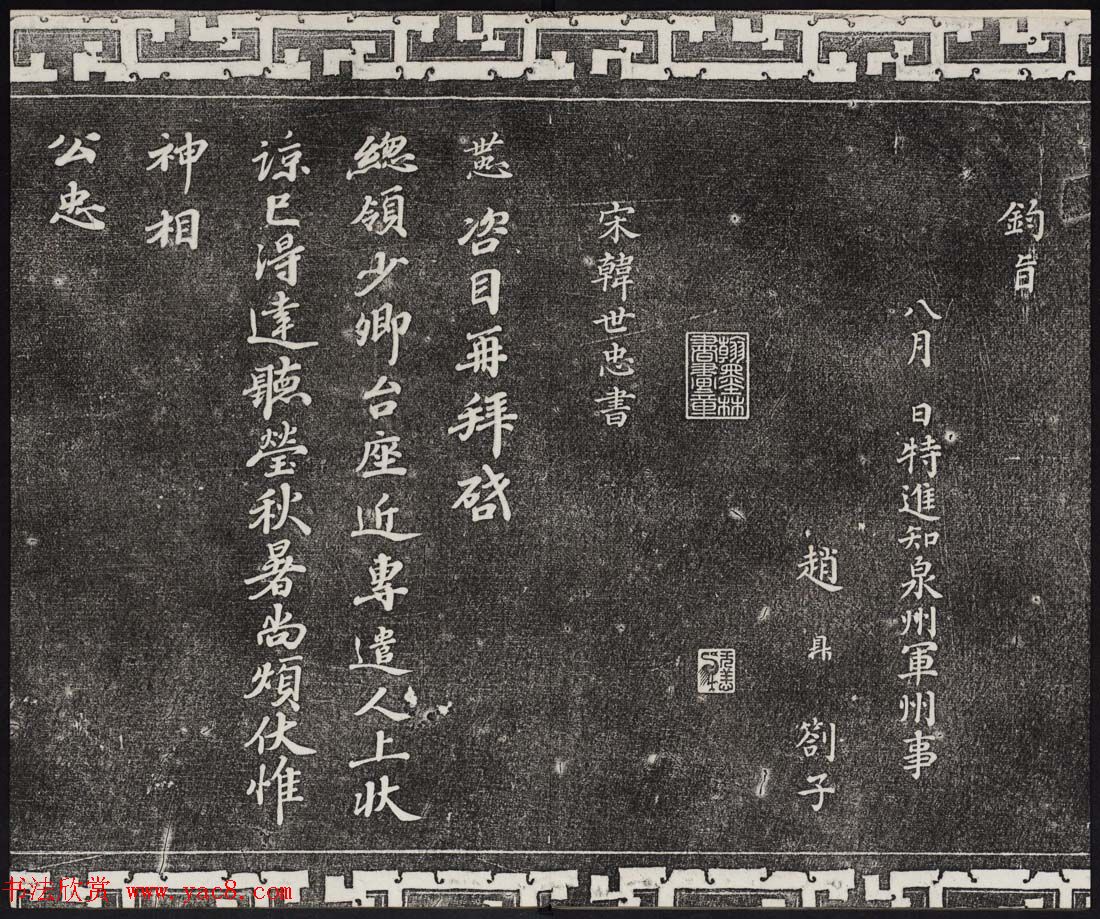 鈞旨
八月 日特進知泉州軍州事
趙鼎劄子
翰墨林書畫章
宋韓世忠書
世忠 咨目再拜啓
總領少卿台座近專遣人上狀
諒已得達聽瑩秋暑尚煩伏惟
神相
公忠
书法欣赏 www.yac8.com